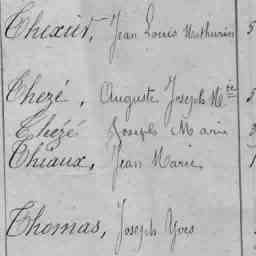 Thexier, Jean Louis Mathurin 5
Chezé, Auguste Joseph M ie
Chézé Joseph Marie
Thiaux, Jean Marie 1
Thomas, Joseph Yves